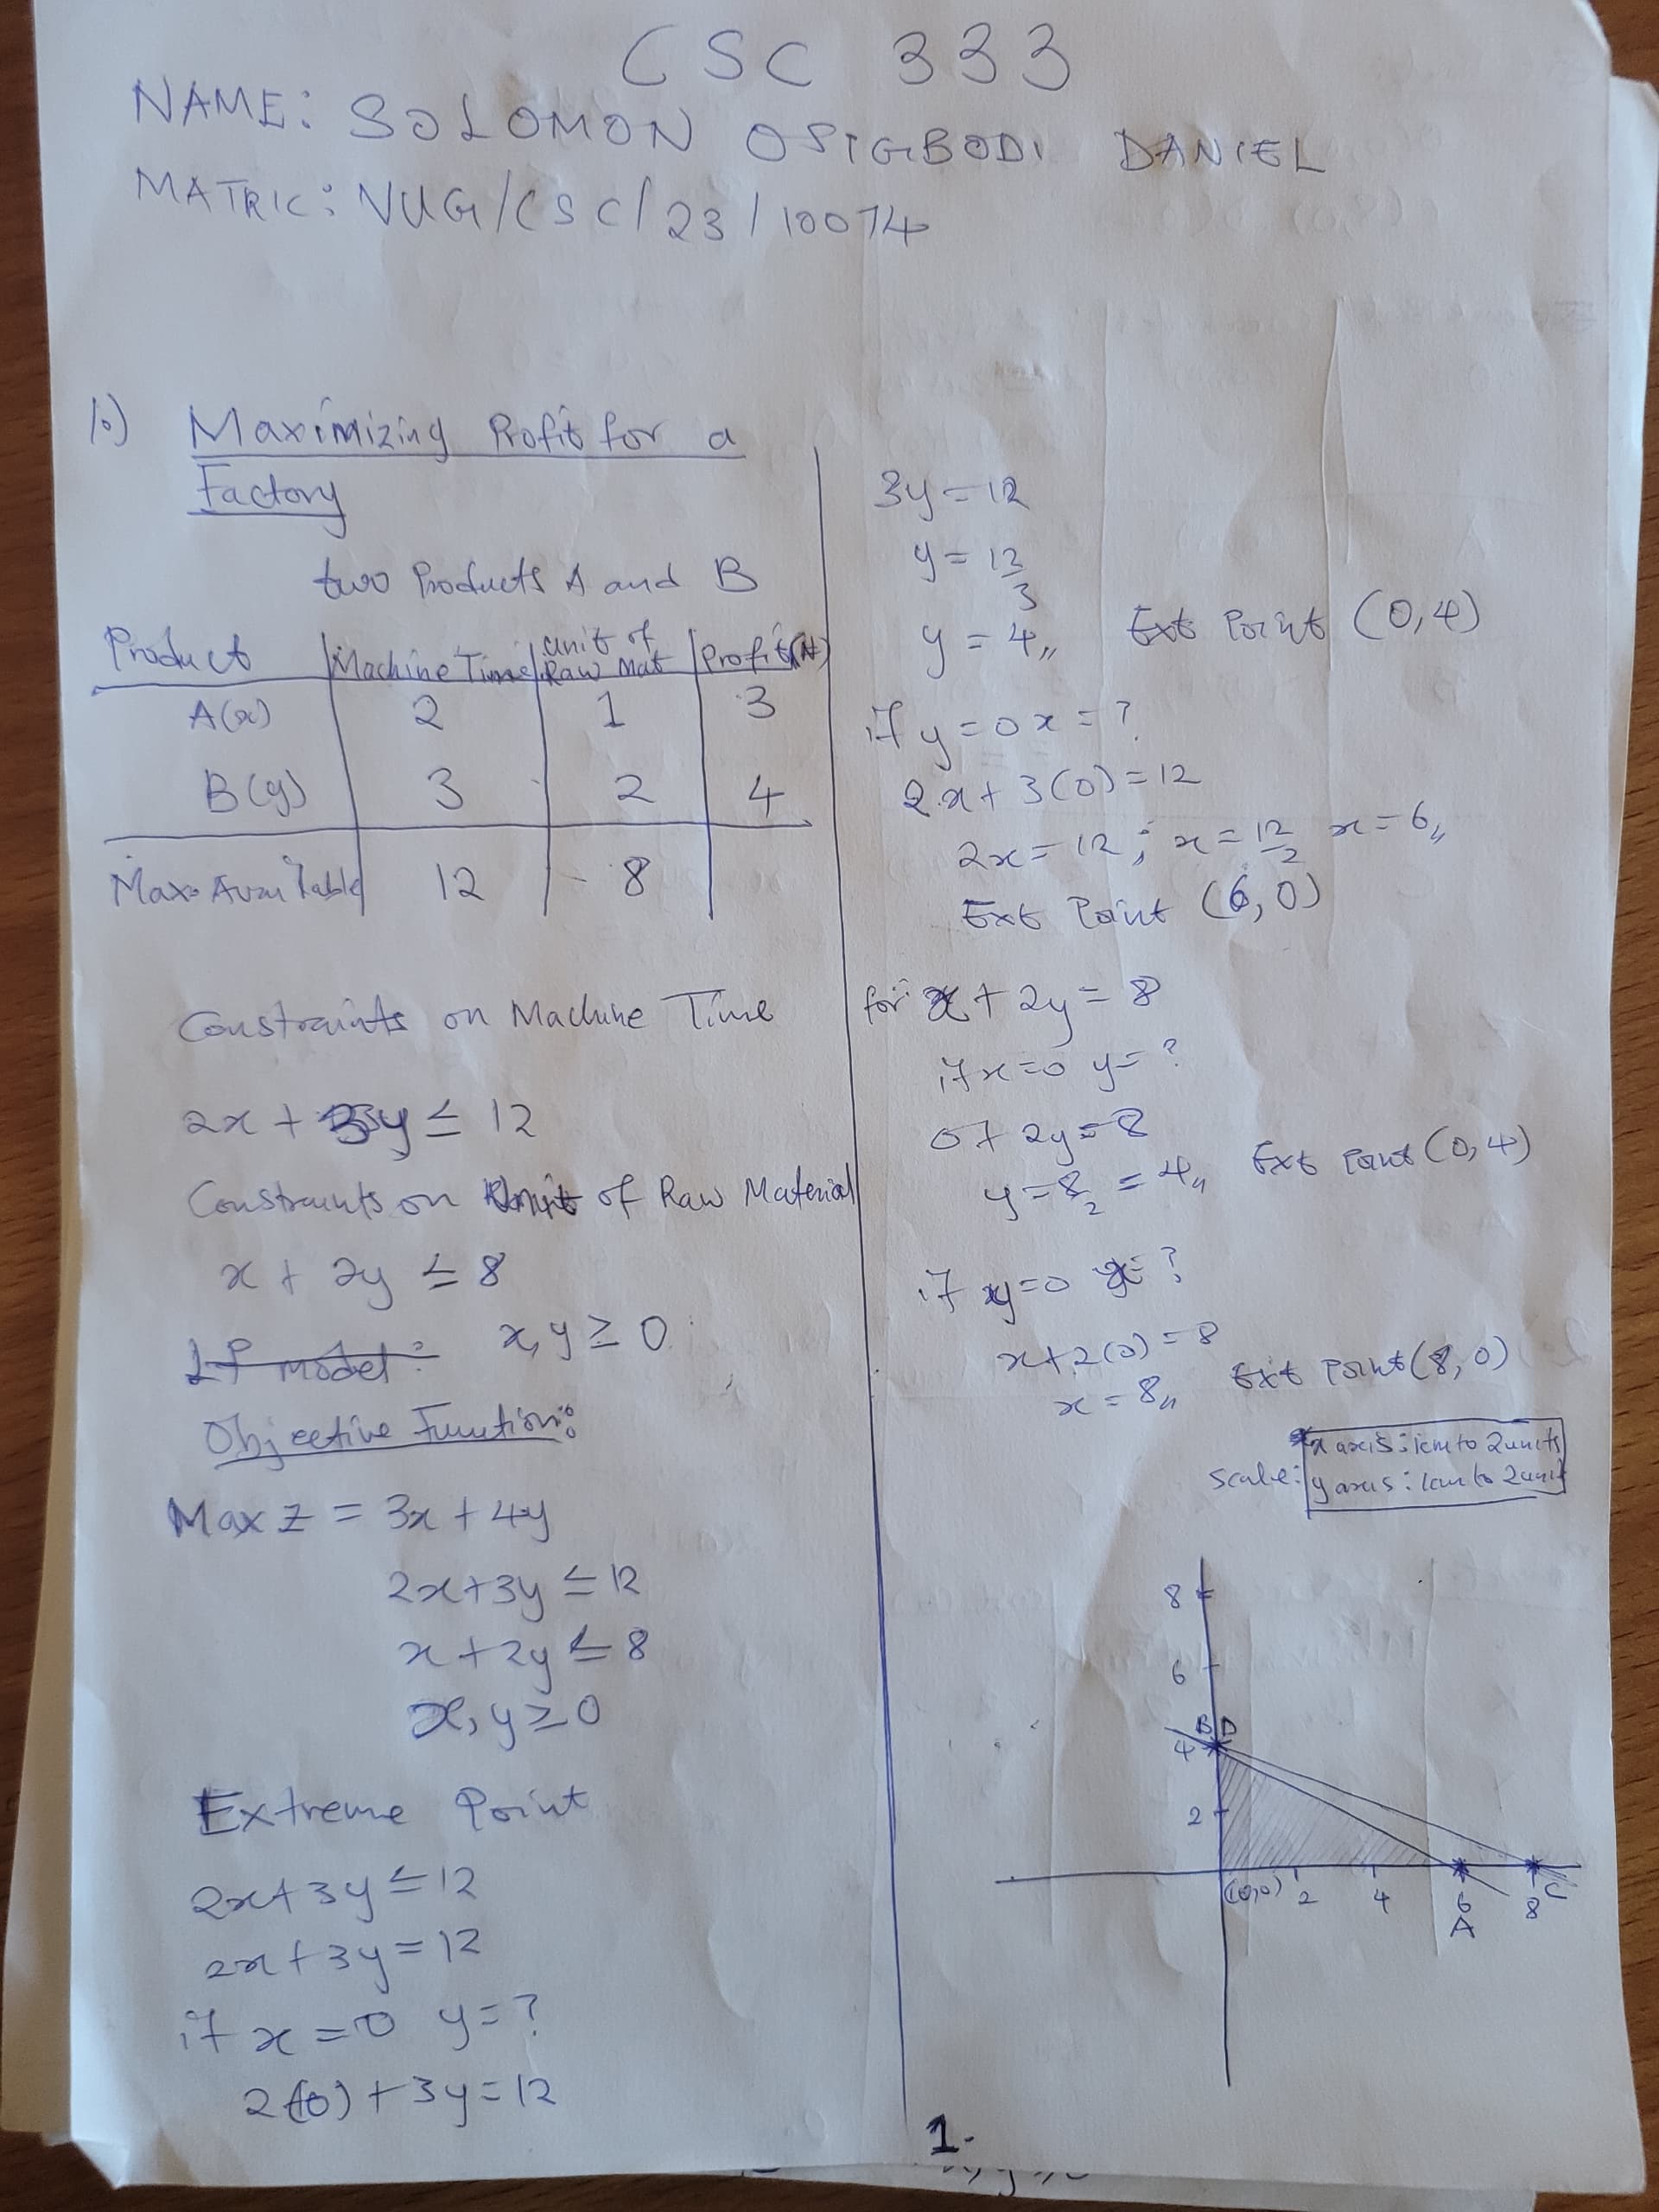 CSC 333
NAME: SOLOMON OSIGBODI DANIEL
MATRIC: NUG/CSC/23/10074
1.) Maximizing Profit for a
Factory
two Products A and B
Product | Machine Time | Unit of Raw Mat | Profit(₦)
A(x) 2 1 3
B(y) 3 2 4
Max. Available 12 8
Constraints on Machine Time
2x + 3y ≤ 12
Constraints on Unit of Raw Material
x + 2y ≤ 8
LP model: x, y ≥ 0
Objective Function:
Max Z = 3x + 4y
2x+3y ≤ 12
x+2y ≤ 8
x, y ≥ 0
Extreme Point
2x+3y ≤ 12
2x+3y = 12
if x = 0 y = ?
2(0) + 3y = 12
3y = 12
y = 12/3
y = 4,, Ext Point (0,4)
if y = 0 x = ?
2x + 3(0) = 12
2x = 12; x = 12/2 x = 6,,
Ext Point (6,0)
for x + 2y = 8
if x = 0 y = ?
0 + 2y = 8
y = 8/2 = 4,, Ext Point (0,4)
if y = 0 x = ?
x + 2(0) = 8
x = 8,, Ext Point (8,0)
scale: x axis: 1cm to 2units
y axis: 1cm to 2unit
8
6
B D
4
2
(0,0) 2 4 6 8 C
A
1.